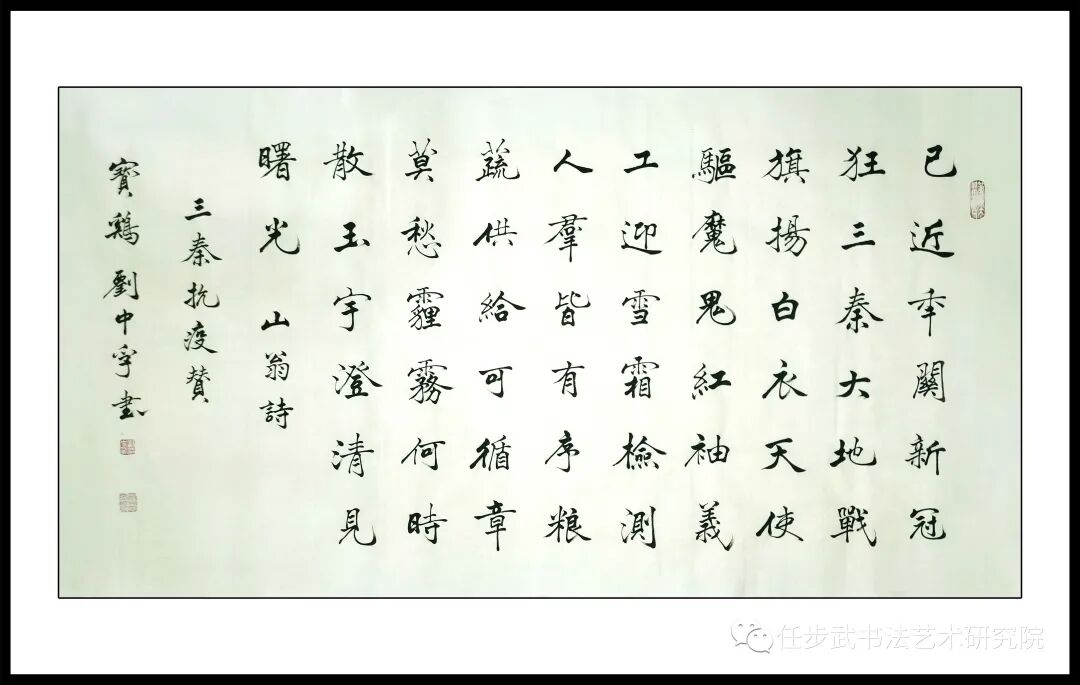 已近年關新冠
狂三秦大地戰
旗揚白衣天使
驅魔鬼紅袖義
工迎雪霜檢測
人羣皆有序粮
蔬供給可循章
莫愁霾霧何時
散玉宇澄清見
曙光 山翁詩
三秦抗疫贊
寳鷄劉中孚書
任步武书法艺术研究院